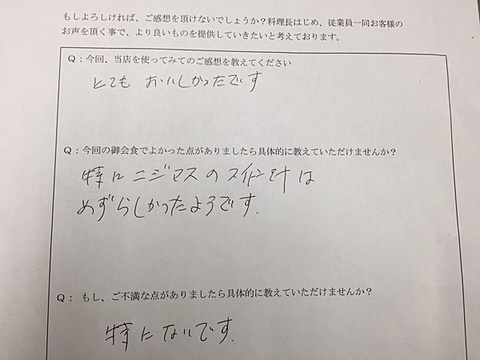 もしよろしければ、ご感想を頂けないでしょうか？料理長はじめ、従業員一同お客様の
お声を頂く事で、より良いものを提供していきたいと考えております。
Q：今回、当店を使ってみてのご感想を教えてください
とても おいしかったです
Q：今回の御会食でよかった点がありましたら具体的に教えていただけませんか？
特にニジマスの は
めずらしかったようです.
Q： もし、ご不満な点がありましたら具体的に教えていただけませんか？
特にないです.